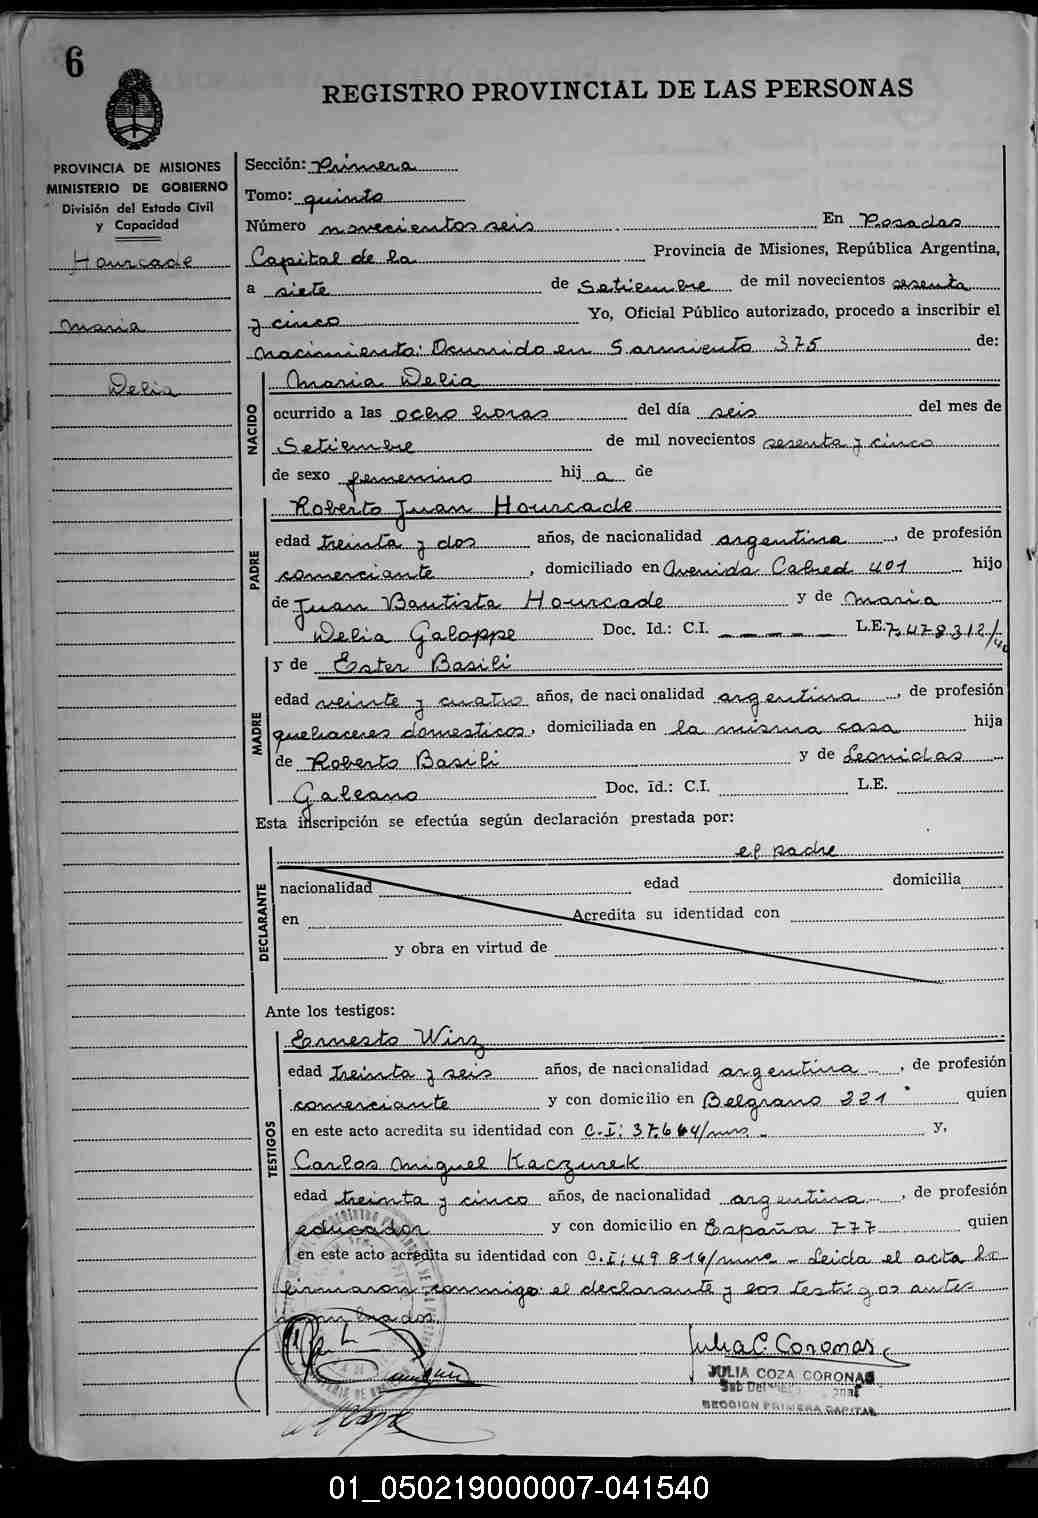 6
REGISTRO PROVINCIAL DE LAS PERSONAS
PROVINCIA DE MISIONES
MINISTERIO DE GOBIERNO
División del Estado Civil
y Capacidad
Hourcade
Maria
Delia
Sección: Primera
Tomo: quinto
Número novecientos seis En Posadas
Capital de la Provincia de Misiones, República Argentina,
a siete de Setiembre de mil novecientos sesenta
y cinco Yo, Oficial Público autorizado, procedo a inscribir el
nacimiento: Ocurrido en Sarmiento 375 de:
NACIDO
Maria Delia
ocurrido a las ocho horas del día seis del mes de
Setiembre de mil novecientos sesenta y cinco
de sexo femenino hij a de
PADRE
Roberto Juan Hourcade
edad treinta y dos años, de nacionalidad argentina, de profesión
comerciante, domiciliado en Avenida Cabred 401 hijo
de Juan Bautista Hourcade y de Maria
Delia Galoppe Doc. Id.: C.I. — — — — — L.E. 7.478.312/
MADRE
y de Ester Basili
edad veinte y cuatro años, de nacionalidad argentina, de profesión
quehaceres domesticos, domiciliada en la misma casa hija
de Roberto Basili y de Leonidas
Galeano Doc. id.: C.I. L.E.
Esta inscripción se efectúa según declaración prestada por:
DECLARANTE
el padre
nacionalidad edad domicilia
en Acredita su identidad con
y obra en virtud de
Ante los testigos:
TESTIGOS
Ernesto Wirz
edad treinta y seis años, de nacionalidad argentina, de profesión
comerciante y con domicilio en Belgrano 221 quien
en este acto acredita su identidad con C.I: 37.664/mns. y,
Carlos Miguel Kaczurek
edad treinta y cinco años, de nacionalidad argentina, de profesión
educador y con domicilio en España 777 quien
en este acto acredita su identidad con C.I: 49816/mns - Leida el acta la
firmaron conmigo el declarante y los testigos ante-
nombrados.
Julia C. Coronas
JULIA COZA CORONAS
SECCION PRIMERA CAPITAL
01_050219000007-041540